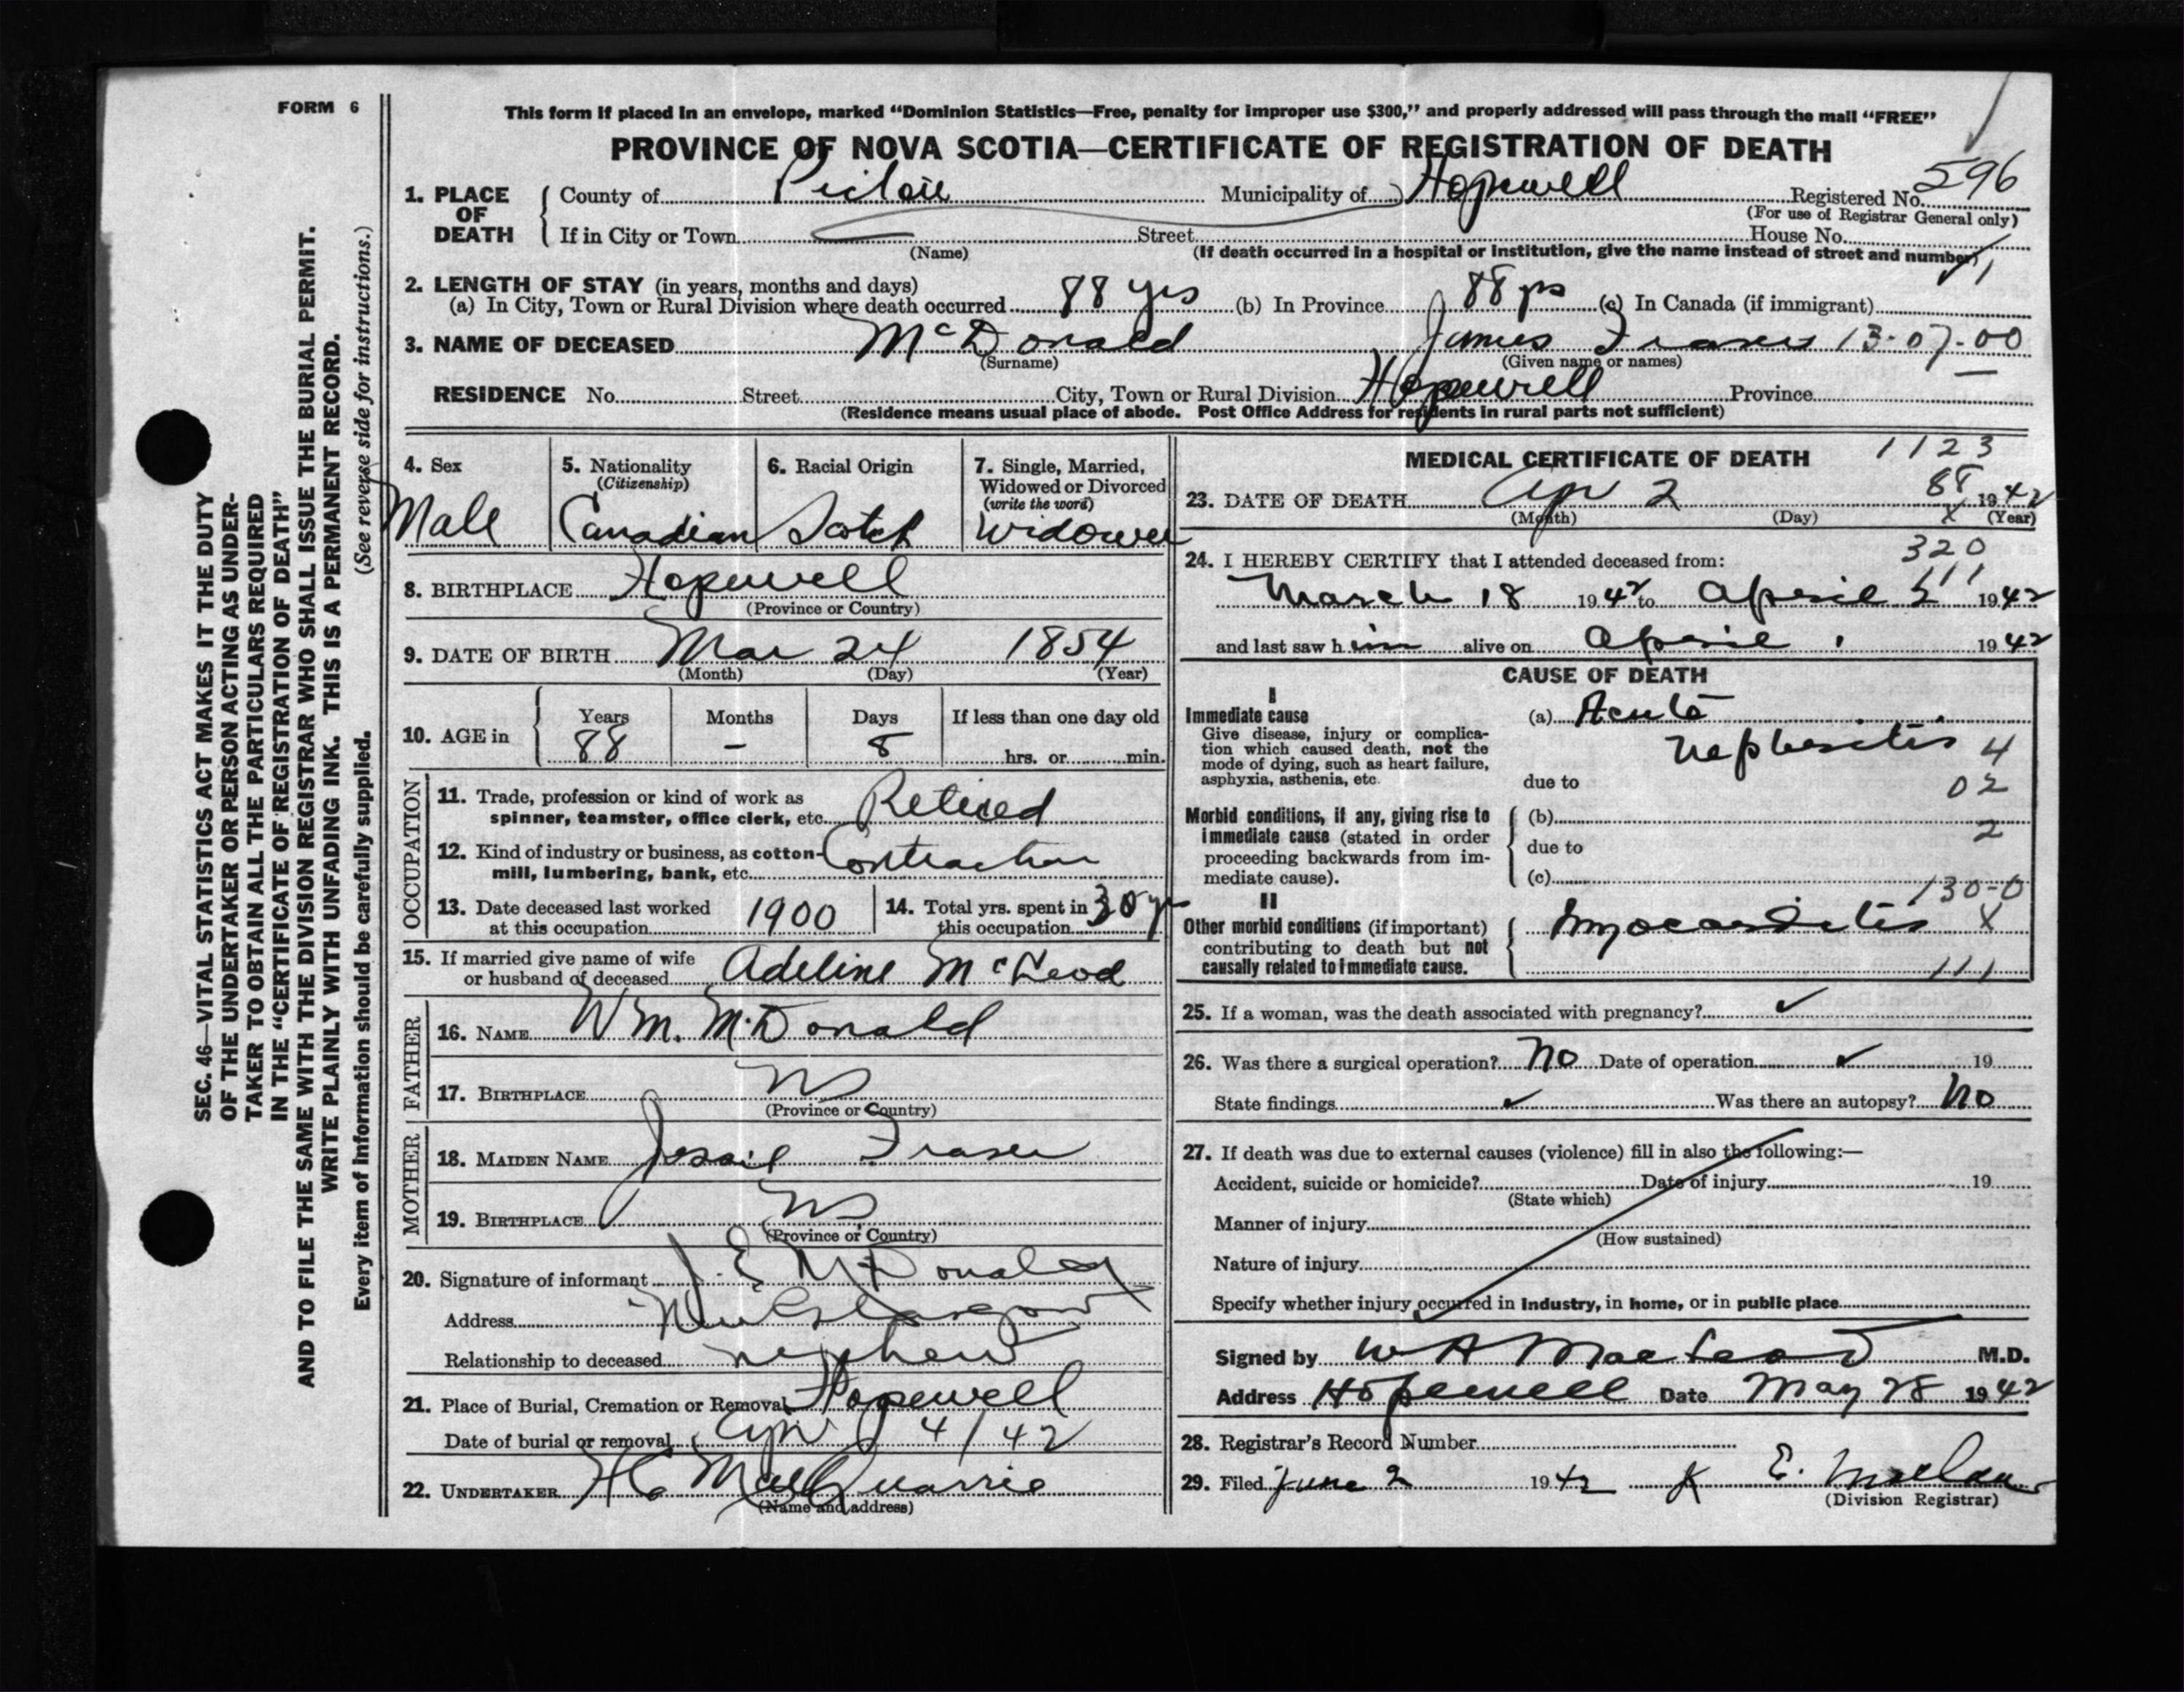 FORM 6
This form if placed in an envelope, marked "Dominion Statistics—Free, penalty for improper use $300," and properly addressed will pass through the mail "FREE"
PROVINCE OF NOVA SCOTIA—CERTIFICATE OF REGISTRATION OF DEATH
1. PLACE OF DEATH
County of Pictou Municipality of Hopewell Registered No. 596
(For use of Registrar General only)
If in City or Town Street House No.
(Name) (If death occurred in a hospital or institution, give the name instead of street and number)
2. LENGTH OF STAY (in years, months and days)
(a) In City, Town or Rural Division where death occurred 88 yrs (b) In Province 88 yrs (c) In Canada (if immigrant)
3. NAME OF DECEASED McDonald James Fraser 13-07-00
(Surname) (Given name or names)
RESIDENCE No. Street City, Town or Rural Division Hopewell Province
(Residence means usual place of abode. Post Office Address for residents in rural parts not sufficient)
4. Sex
Male
5. Nationality
(Citizenship)
Canadian
6. Racial Origin
Scotch
7. Single, Married,
Widowed or Divorced
(write the word)
Widower
8. BIRTHPLACE Hopewell
(Province or Country)
9. DATE OF BIRTH Mar 24 1854
(Month) (Day) (Year)
10. AGE in
Years Months Days If less than one day old
88 - 8 hrs. or min.
OCCUPATION
11. Trade, profession or kind of work as
spinner, teamster, office clerk, etc. Retired
12. Kind of industry or business, as cotton-
mill, lumbering, bank, etc. Contractor
13. Date deceased last worked
at this occupation 1900
14. Total yrs. spent in
this occupation 30 yrs
15. If married give name of wife
or husband of deceased Adeline McLeod
FATHER
16. NAME Wm. McDonald
17. BIRTHPLACE NS
(Province or Country)
MOTHER
18. MAIDEN NAME Jessie Fraser
19. BIRTHPLACE NS
(Province or Country)
20. Signature of informant J. E McDonald
Address New Glasgow
Relationship to deceased nephew
21. Place of Burial, Cremation or Removal Hopewell
Date of burial or removal Apr 4/42
22. UNDERTAKER H C MacQuarrie
(Name and address)
MEDICAL CERTIFICATE OF DEATH 1123
23. DATE OF DEATH Apr 2 88 1942
(Month) (Day) x (Year)
24. I HEREBY CERTIFY that I attended deceased from: 320
111
March 18 1942 to April 1942
and last saw him alive on April 1 1942
CAUSE OF DEATH
I
Immediate cause
Give disease, injury or complica-
tion which caused death, not the
mode of dying, such as heart failure,
asphyxia, asthenia, etc.
(a) Acute
Nephritis 4
due to 02
Morbid conditions, if any, giving rise to
immediate cause (stated in order
proceeding backwards from im-
mediate cause).
(b)
due to 2
(c) 130-0
II
Other morbid conditions (if important)
contributing to death but not
causally related to immediate cause.
Myocarditis X
111
25. If a woman, was the death associated with pregnancy? ✓
26. Was there a surgical operation? No Date of operation ✓ 19
State findings ✓ Was there an autopsy? No
27. If death was due to external causes (violence) fill in also the following:—
Accident, suicide or homicide? Date of injury 19
(State which)
Manner of injury
(How sustained)
Nature of injury
Specify whether injury occurred in industry, in home, or in public place
Signed by W A MacLeod M.D.
Address Hopewell Date May 28 1942
28. Registrar's Record Number
29. Filed June 2 1942 K E.
(Division Registrar)
SEC. 46—VITAL STATISTICS ACT MAKES IT THE DUTY
OF THE UNDERTAKER OR PERSON ACTING AS UNDER-
TAKER TO OBTAIN ALL THE PARTICULARS REQUIRED
IN THE "CERTIFICATE OF REGISTRATION OF DEATH"
AND TO FILE THE SAME WITH THE DIVISION REGISTRAR WHO SHALL ISSUE THE BURIAL PERMIT.
WRITE PLAINLY WITH UNFADING INK. THIS IS A PERMANENT RECORD.
Every item of information should be carefully supplied. (See reverse side for instructions.)